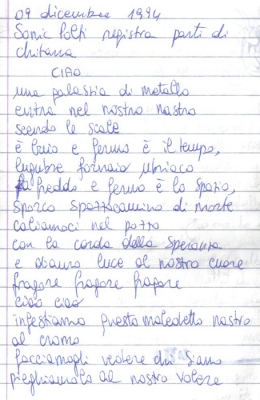 09 dicembre 1994
Sonic Polpi registra parti di
chitarra
CIAO
una palastia di metallo
entra nel nostro nastro
scendo le scale
è buio e fermo è il tempo,
lugubre fornaio ubriaco
fa freddo e fermo è lo spazio,
sporco spazzacamino di morte
caliamoci nel pozzo
con la corda della speranza
e diamo luce al nostro cuore
fragore fragore fragore
ciao ciao
infestiamo questo maledetto nastro
al cromo
facciamogli vedere chi siamo
pieghiamolo al nostro volere